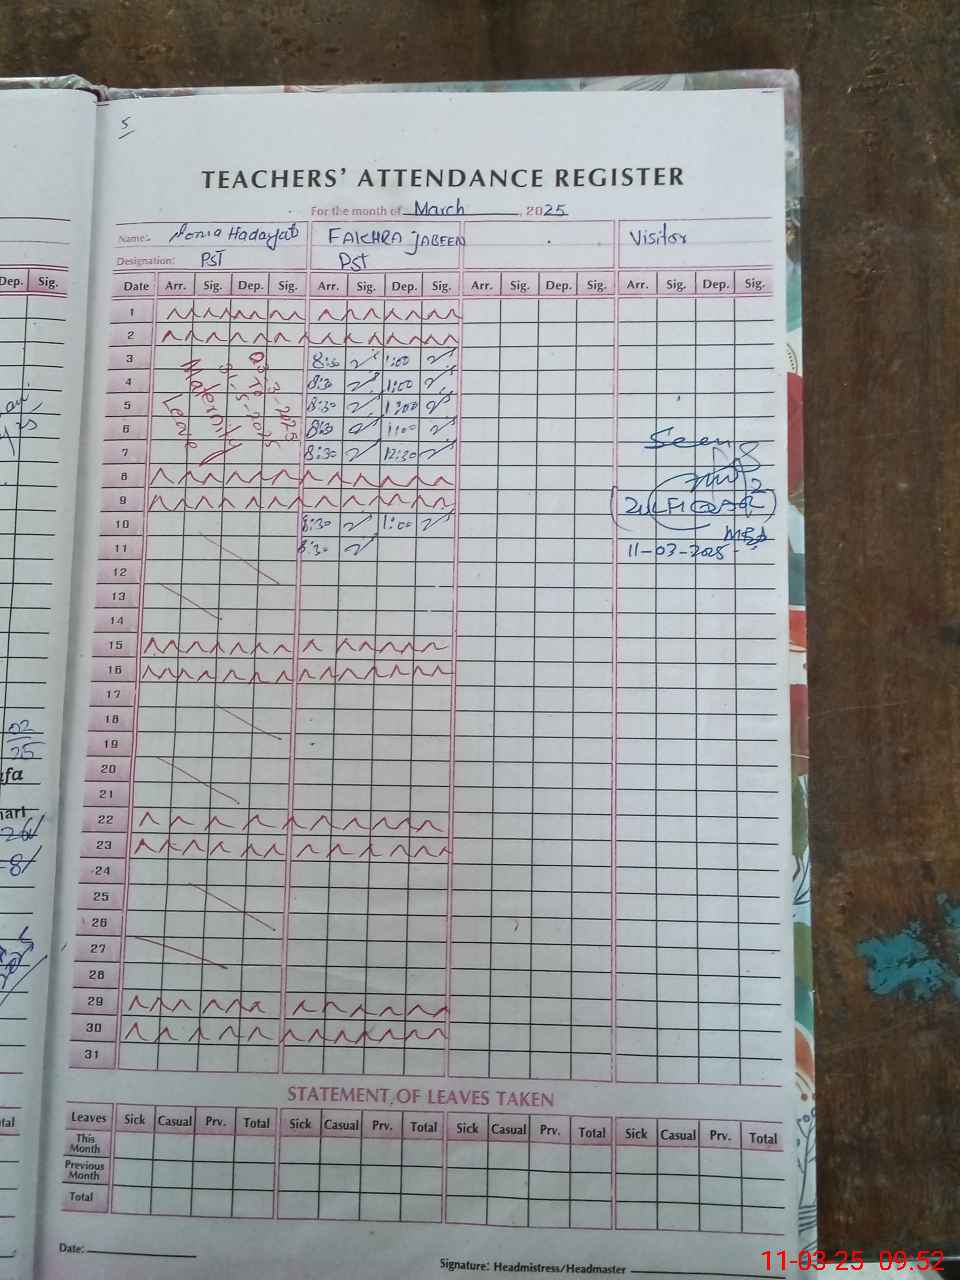 5
TEACHERS' ATTENDANCE REGISTER
For the month of March, 2025
Name: Sonia Hadayat FAKHRA JABEEN Visitor
Designation: PST PST
Dep. Sig. Date Arr. Sig. Dep. Sig. Arr. Sig. Dep. Sig. Arr. Sig. Dep. Sig. Arr. Sig. Dep. Sig.
1
2
3 8:30 1:00
4 8:30 1:00
5 8:30 1:00
6 8:30 1:00
7 8:30 12:30
Maternity Leave
03-3-2025
To
31-5-2025
Seen
8
9
(ZULFIQAR)
10 8:30 1:00
MEA
11 8:30
11-03-2025
12
13
14
15
16
17
18
02
19
25
20
21
22
23
24
25
26
27
28
29
30
31
STATEMENT OF LEAVES TAKEN
Leaves Sick Casual Prv. Total Sick Casual Prv. Total Sick Casual Prv. Total Sick Casual Prv. Total
This Month
Previous Month
Total
Date:
Signature: Headmistress/Headmaster
11-03-25 09:52